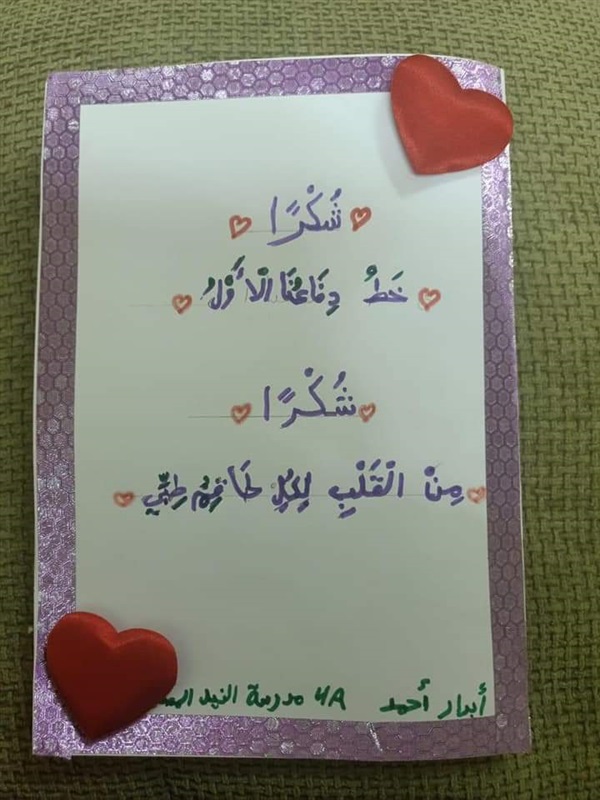 شُكْرًا
خَطُ دِفَاعُنَا الْأَوْلُ
شُكْرًا
مِنْ الْقَلْبِ لِكُلِ طَاقِمُ طِبِّي
أحمد 4A مدرسة